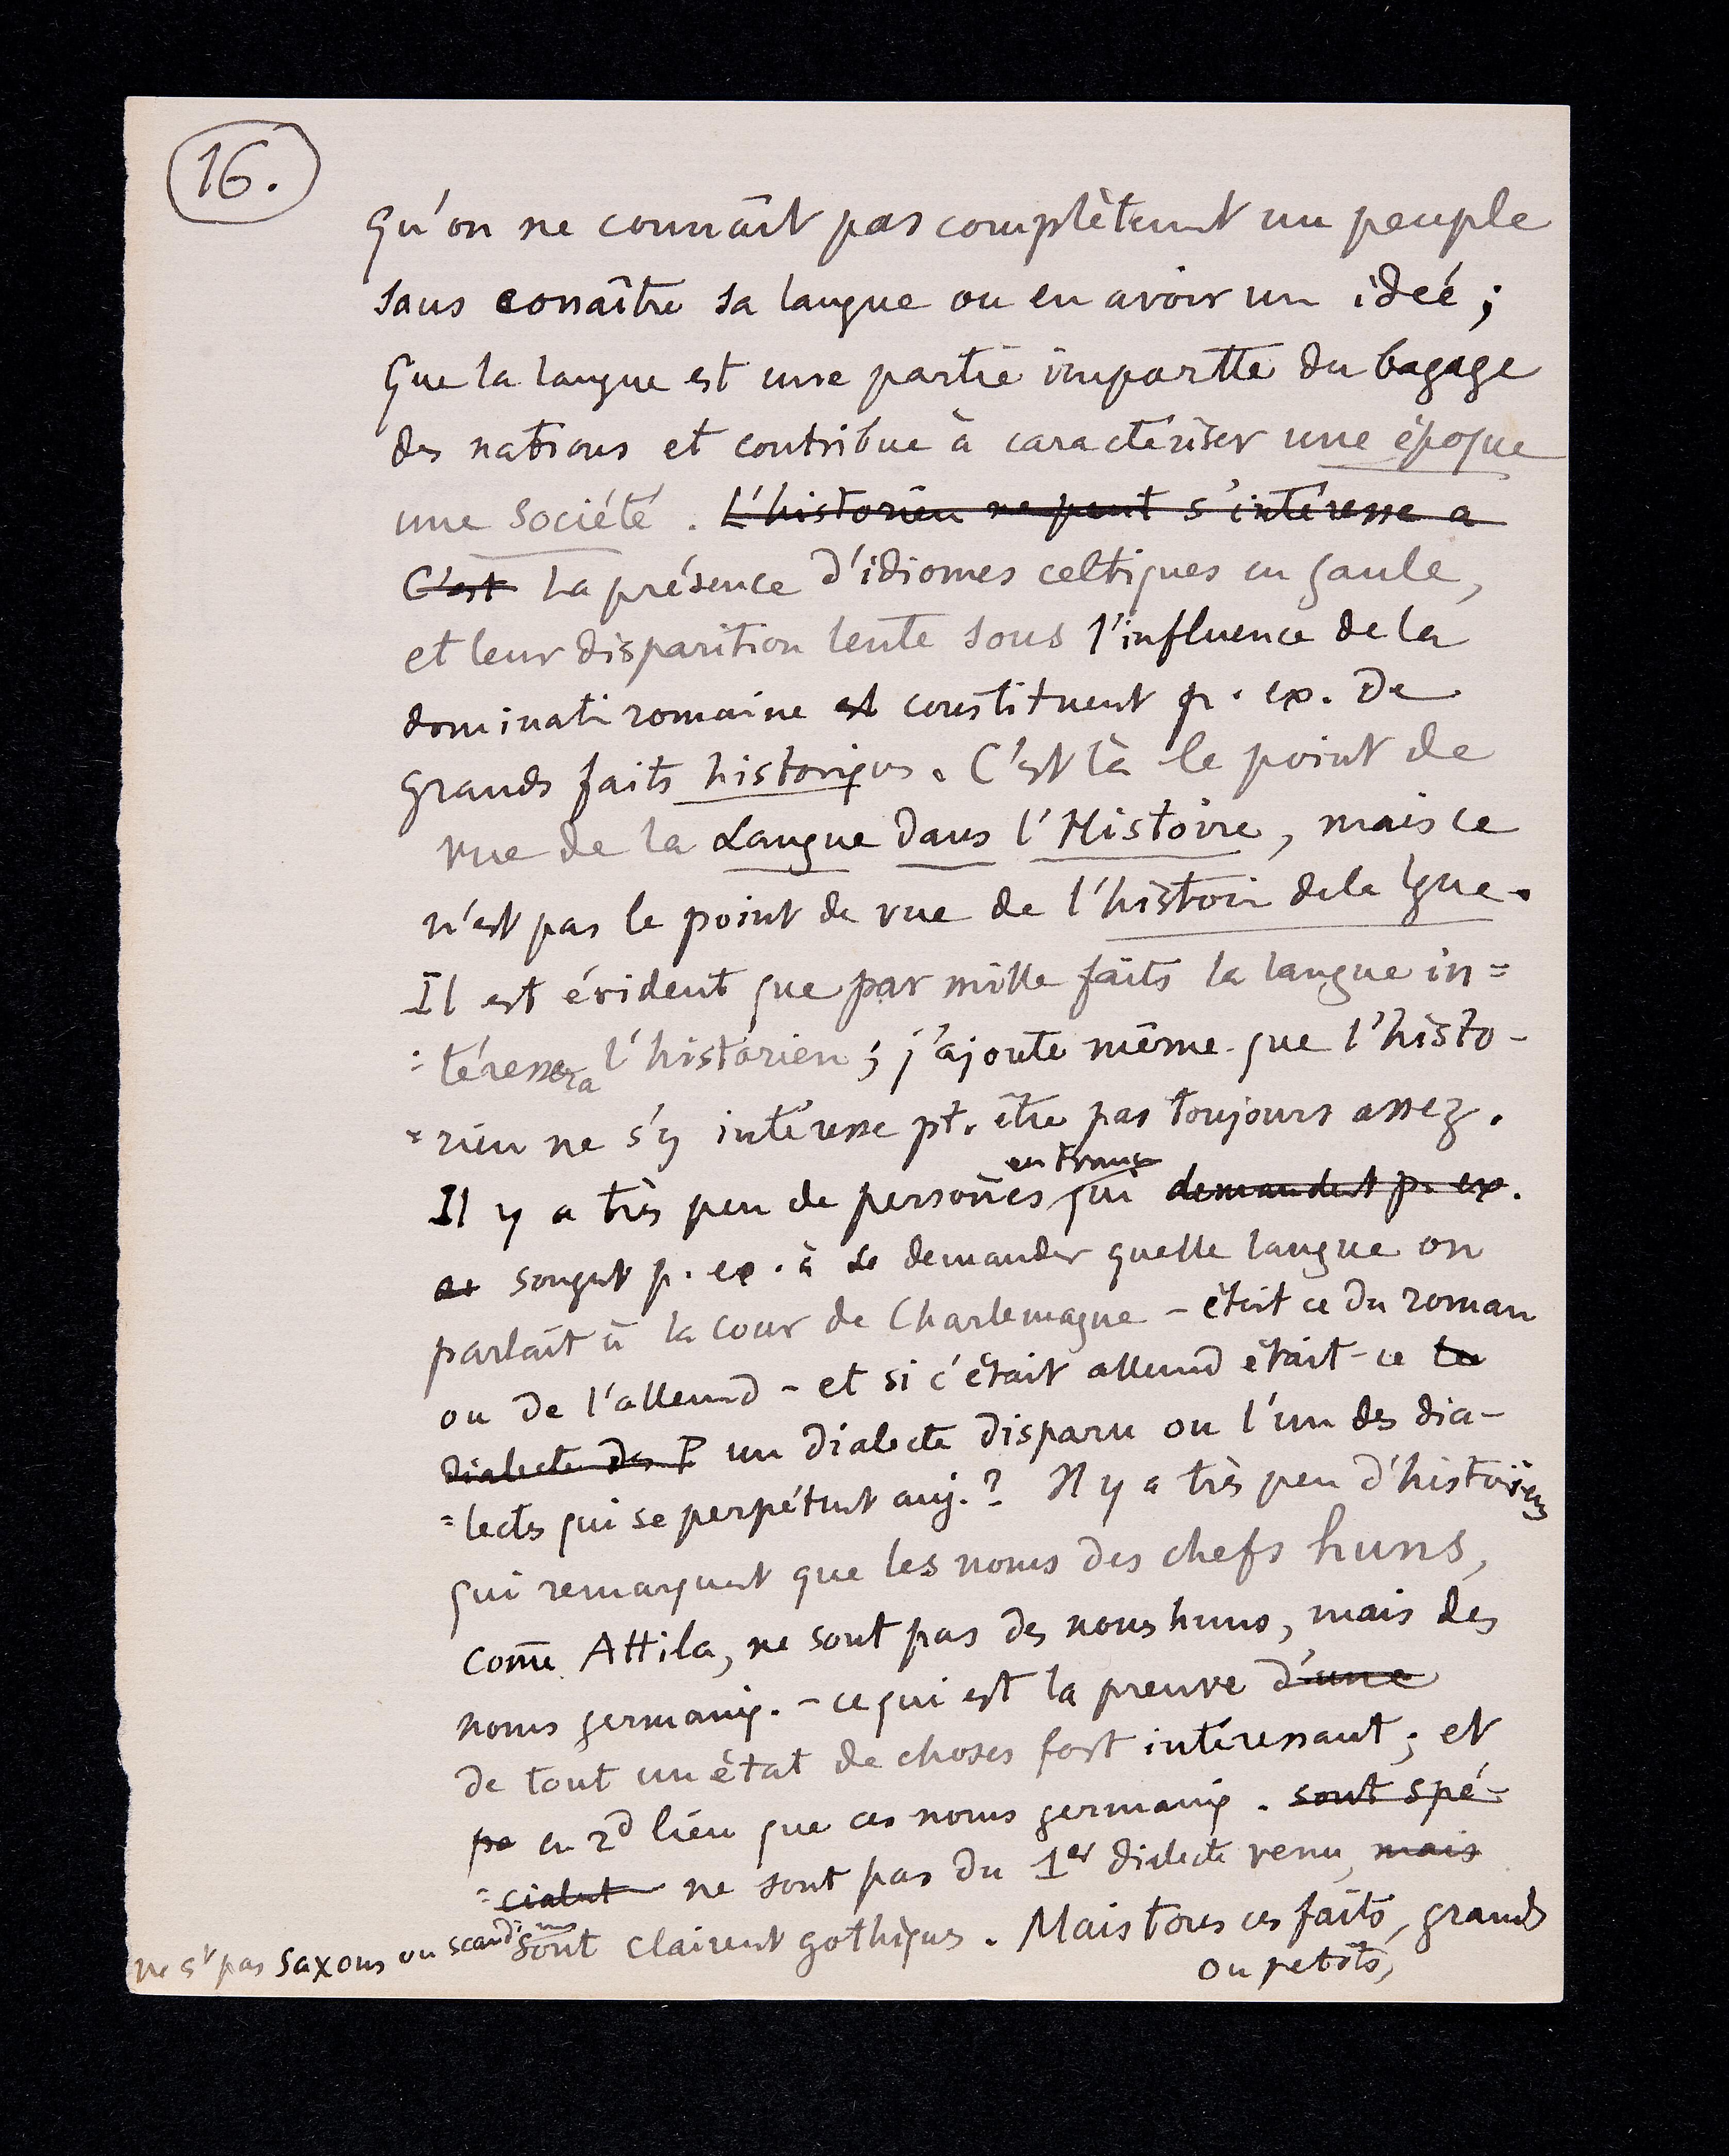 16.
Qu'on ne connaît pas complètemnt un peuple
sans conaître sa langue ou en avoir un ideé ;
Que la langue est une partie importte du bagage
des nations et contribue à caractériser une époque
une société. L'historien ne peut s'intéresse a
C'est La présence d'idiomes celtiques en Gaule,
et leur disparition lente sous l'influence de la
dominati romaine est constituent p. ex. De
grands faits historiqus. C'est là le point de
vue de la Langue dans l'Histoire, mais ce
n'est pas le point de vue de l'histoir de la lgue.
Il est évident que par mille faits la langue in=
=téressera l'historien ; j'ajoute même que l'histo-
=rien ne s'y intéresse pt. être pas toujours assez.
en France
Il y a très peu de persones qui demandent p. ex.
se songnt p. ex. à se demander quelle langue on
parlait à la cour de Charlemagne – était ce du roman
ou de l'allemd – et si c'était allemd était-ce le
dialecte des F un dialecte disparu ou l'un des dia-
=lectes qui se perpétunt auj.? Il y a très peu d'historiens
qui remarqunt que les noms des chefs huns,
come Attila, ne sont pas des noms huns, mais des
noms germaniq. – ce qui est la preuve d'une
de tout un état de choses fort intéressant ; et
pa en 2d lieu que ces noms germaniq. sont spé-
=cialnt ne sont pas du 1er dialecte venu, mais
ne st pas saxons ou scandins sont clairent gothiques. Mais tous ces faits, grands
ou petits,